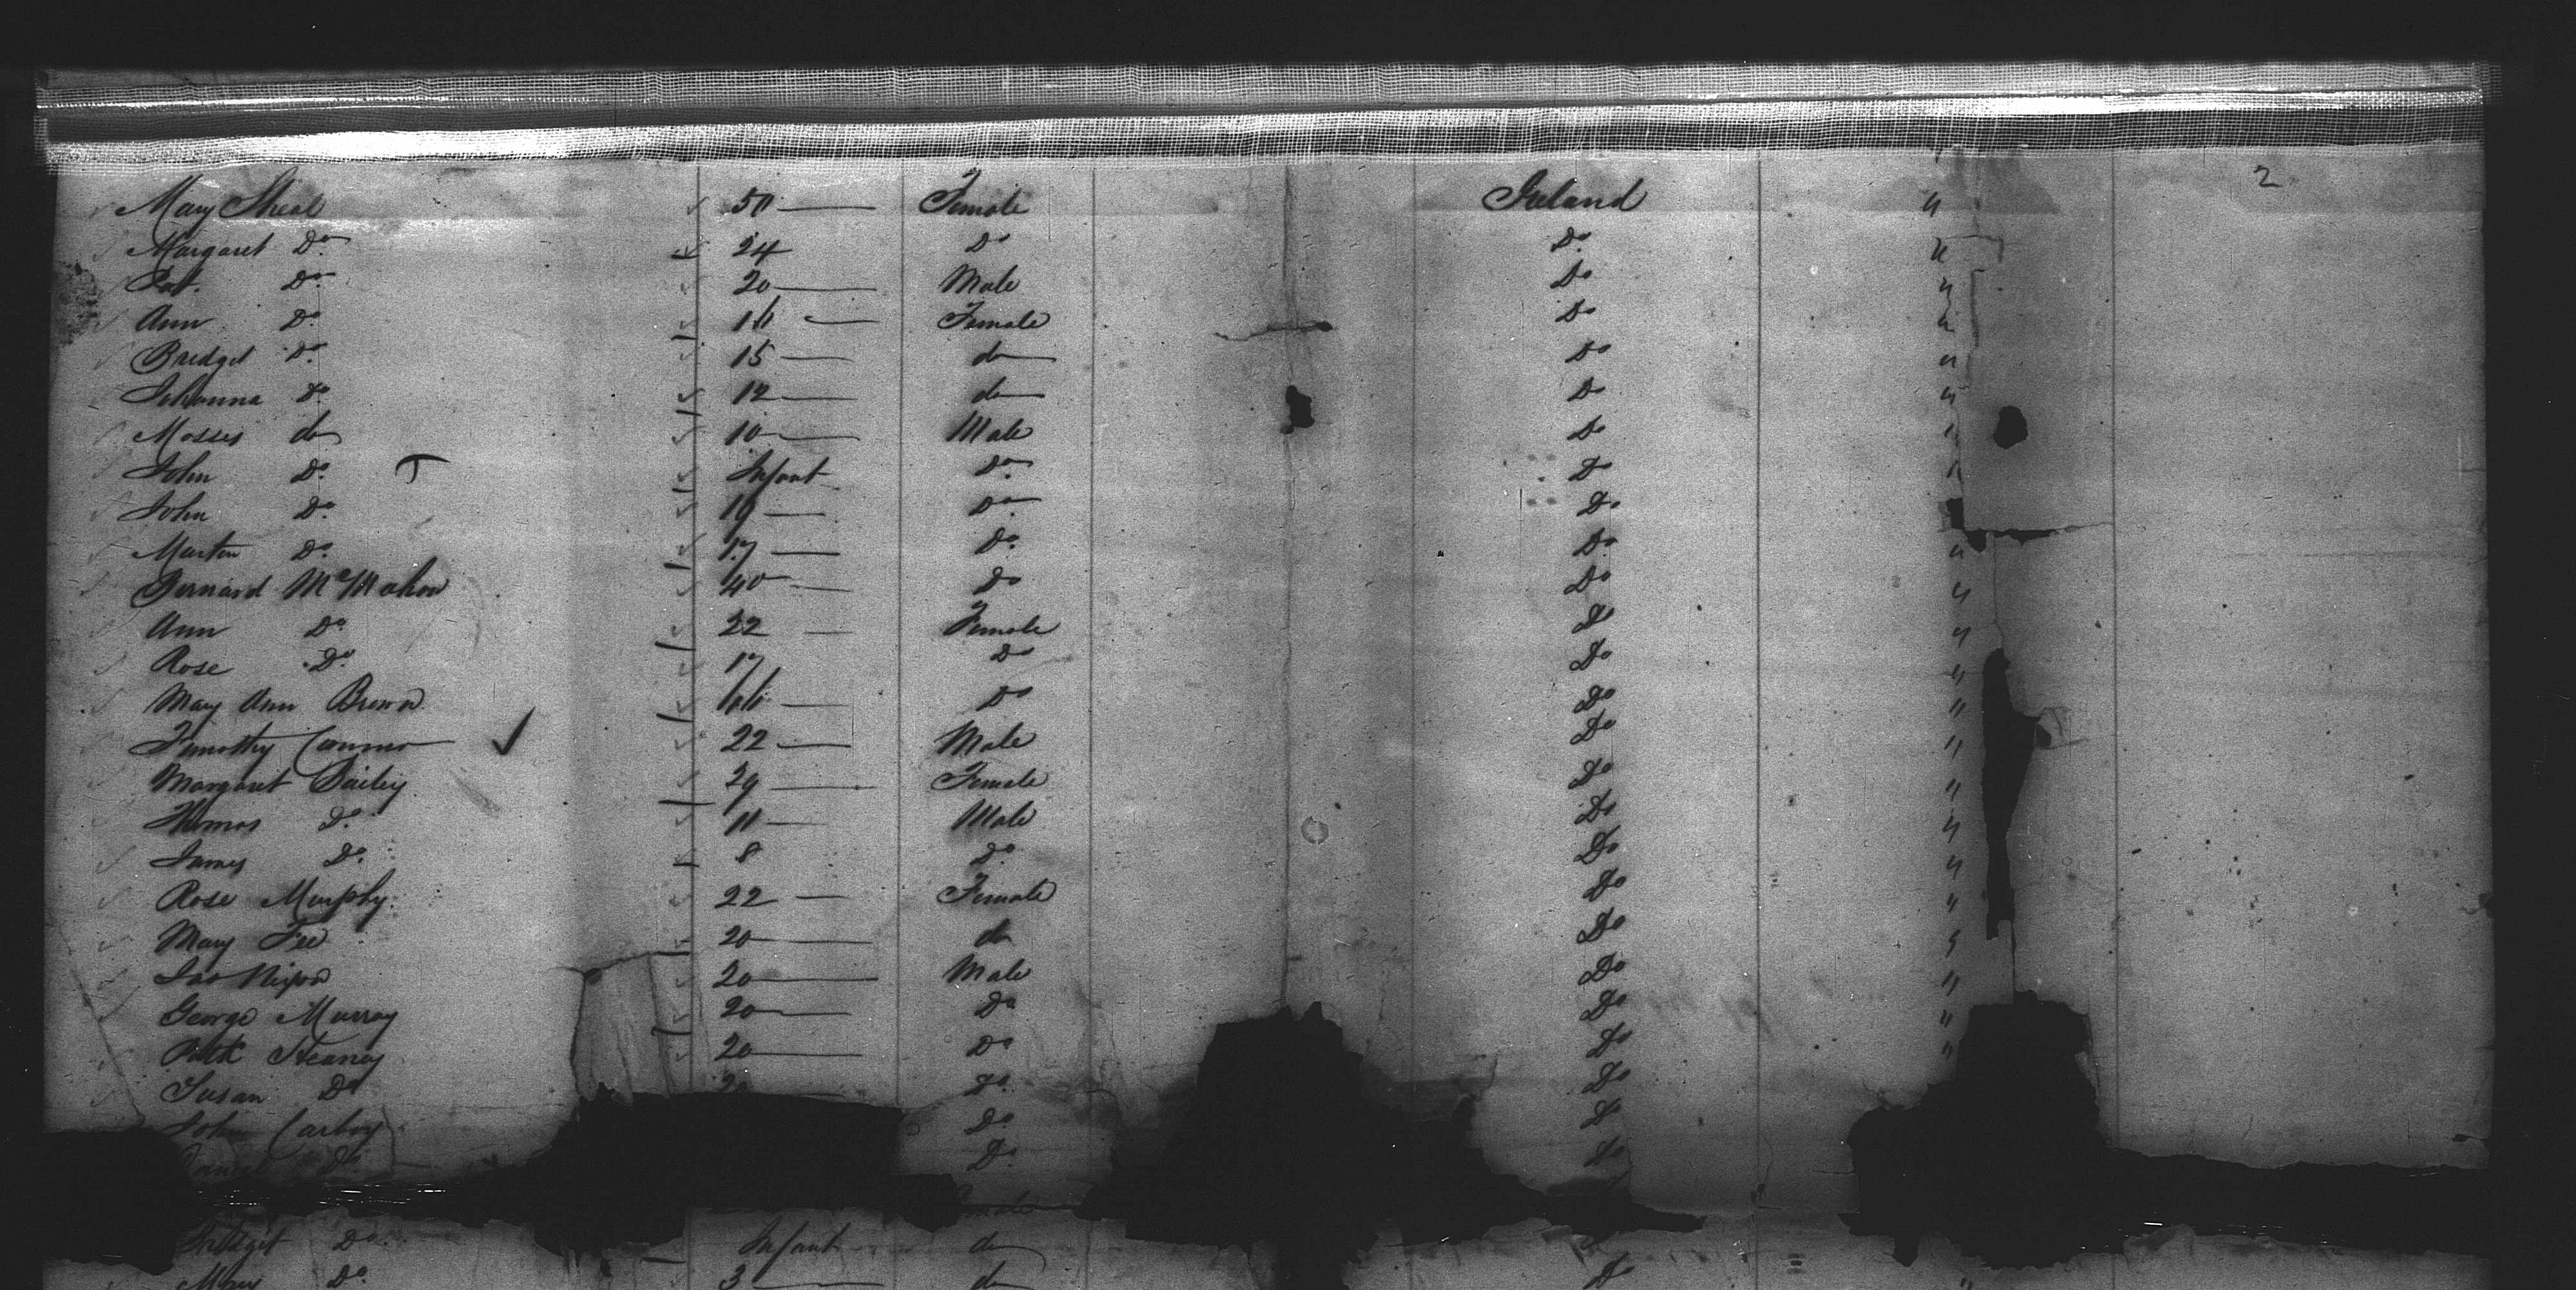 2
Mary Sheal 50 Female Ireland "
Margaret Do 24 Do Do "
Pat. Do 20 Male Do "
Ann Do 16 Female Do "
Bridget Do 15 do Do "
Johanna Do 12 do Do "
Mosses do 10 Male Do "
John Do Infant Do Do "
John Do 19 Do Do
Martin Do 17 Do Do "
Bernard McMahon 40 Do Do "
Ann Do 22 Female Do "
Rose Do 17 Do Do "
Mary Ann Brown 16 Do Do "
Timothy Connor 22 Male Do "
Margaret Bailey 29 Female Do "
Thomas Do 11 Male Do "
James Do 8 Do Do "
Rose Murphy 22 Female Do "
Mary Fee 20 do Do "
Jas Nixon 20 Male Do "
George Murray 20 Do Do "
Patk Keaney 20 Do Do "
Susan Do Do Do
John Carboy Do Do
Do Do Do
Bridgit Do Infant do
Mary Do 3 do Do "